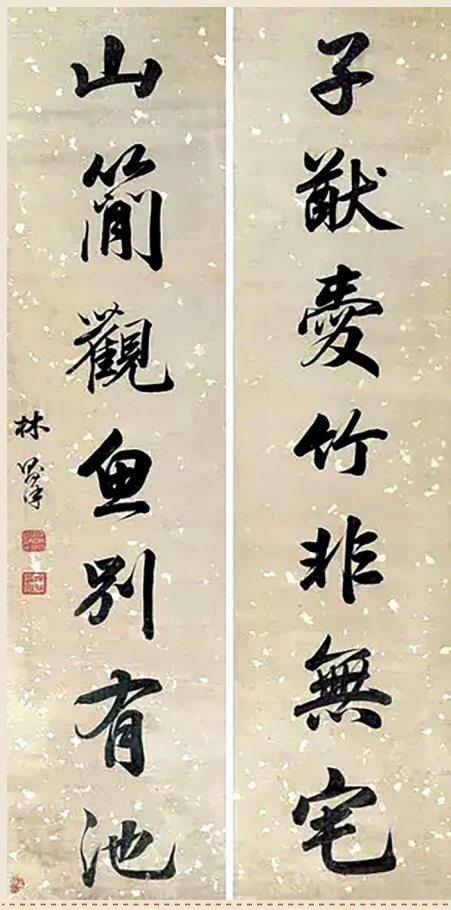 子猷愛竹非無宅
山簡觀魚別有池
林則徐